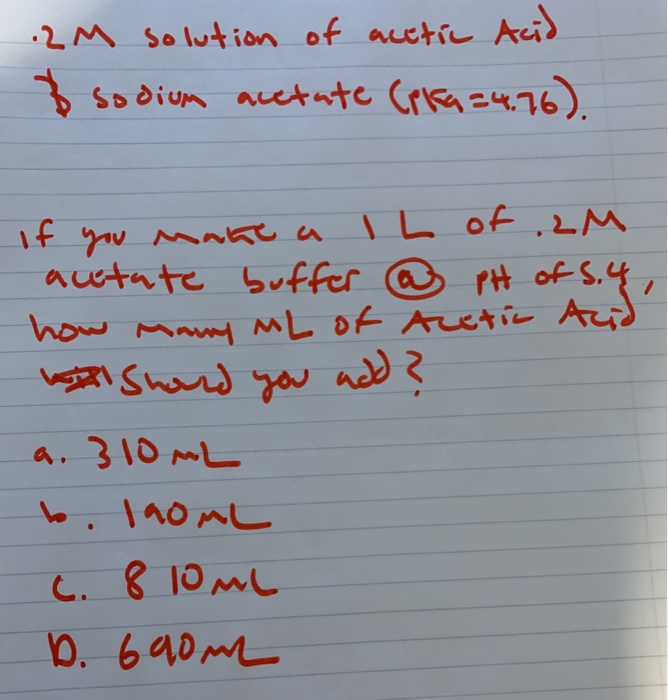 .2M solution of acetic Acid
& sodium acetate (pKa=4.76).
if you make a 1 L of .2M
acetate buffer @ pH of 5.4,
how many mL of Acetic Acid
should you add?
a. 310 mL
b. 190 mL
c. 810 mL
D. 690 mL